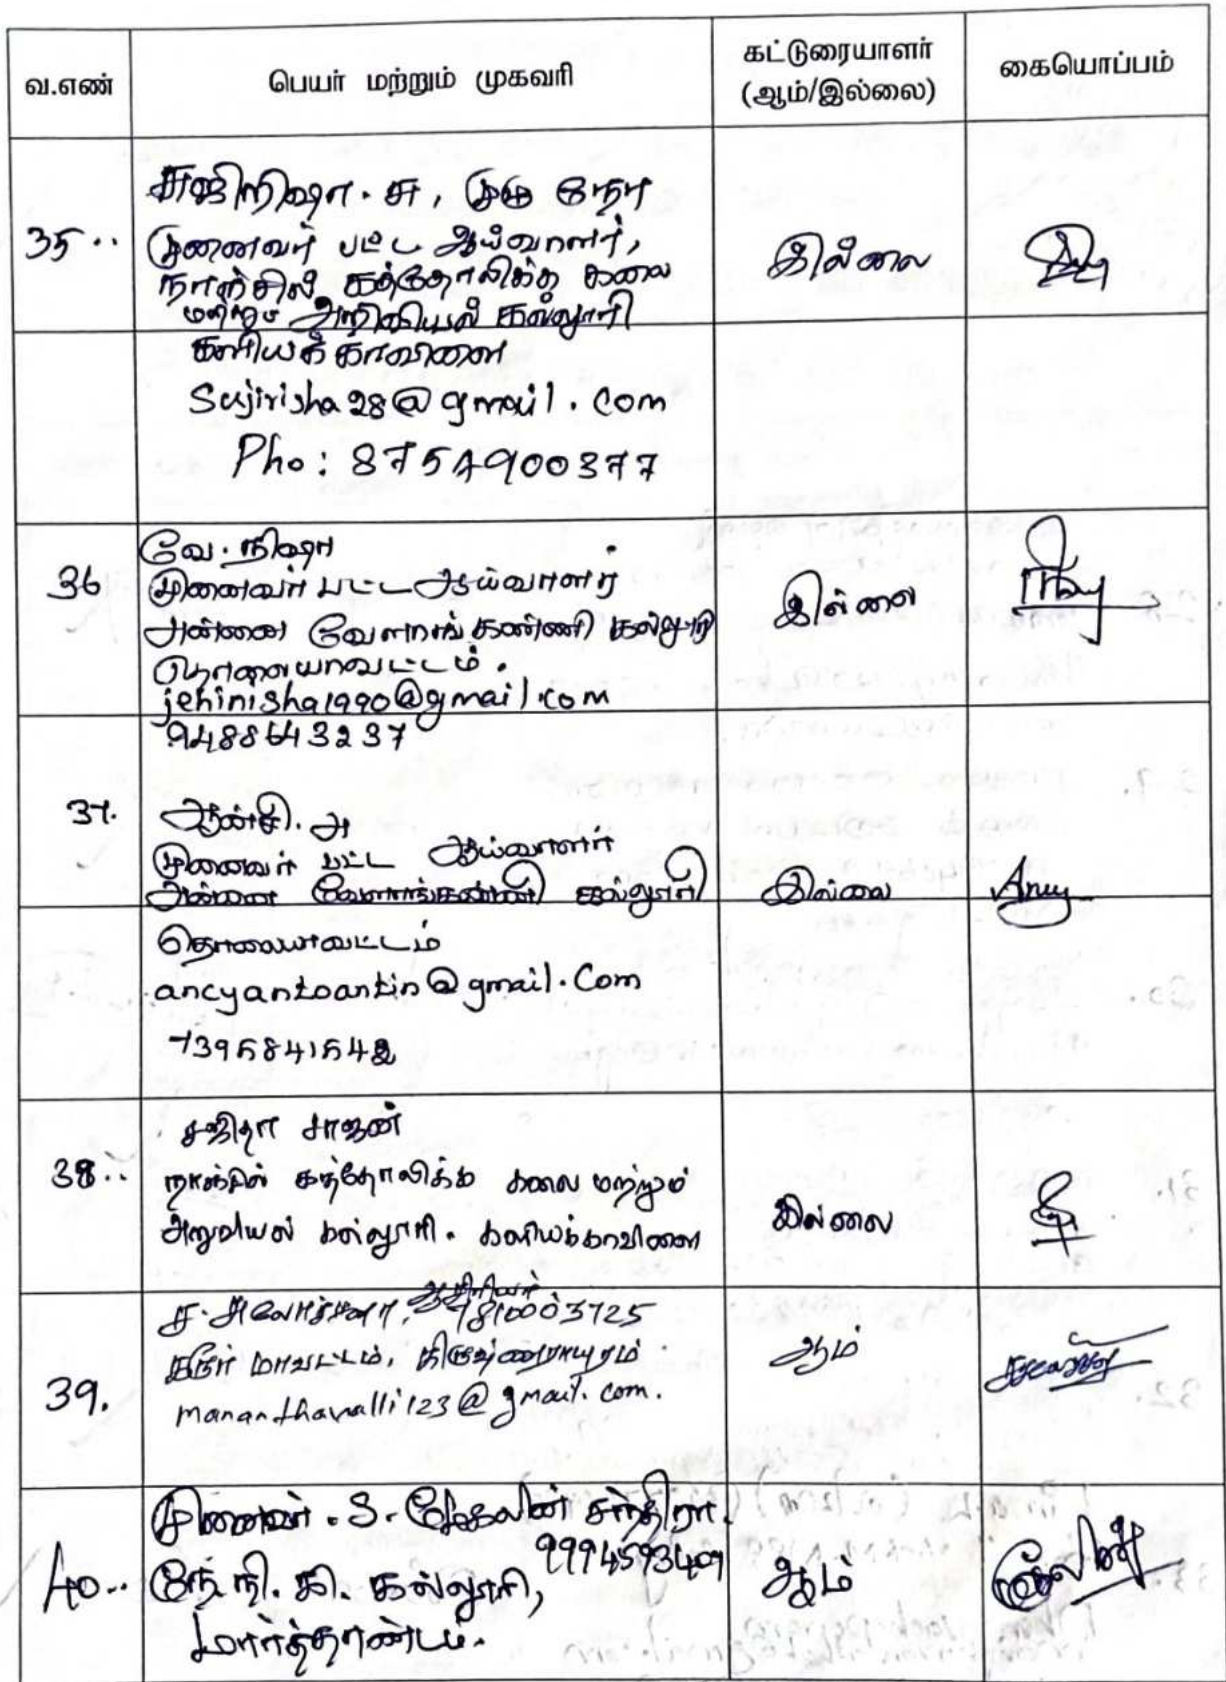 வ.எண் பெயர் மற்றும் முகவரி கட்டுரையாளர் (ஆம்/இல்லை) கையொப்பம்
சுஜிநிஷா. ச, முழு நேர
35.. முனைவர் பட்ட ஆய்வாளர், இல்லை
நாஞ்சில் கத்தோலிக்க கலை
மற்றும் அறிவியல் கல்லூரி
களியக்காவிளை
Sujirisha28@gmail.com
Pho: 8754900377
வே. நிஷா
36 முனைவர் பட்ட ஆய்வாளர் இல்லை
அன்னை வேளாங்கண்ணி கல்லூரி
தொலையாவட்டம்.
jehinisha1990@gmail.com
9488643237
37. ஆன்சி. அ
முனைவர் பட்ட ஆய்வாளர்
அன்னை வேளாங்கண்ணி கல்லூரி இல்லை Ancy
தொலையாவட்டம்
ancyantoantin@gmail.com
சஜிதா சாஜன்
38.. நாஞ்சில் கத்தோலிக்க கலை மற்றும்
அறுவியல் கல்லூரி. களியக்காவிளை இல்லை
ஆசிரியர்
9810003725
மாவட்டம், ஆம்
39. mananthavalli123@gmail.com.
முனைவர். S. சந்திரா
9994593409
40.. நே. நி. கி. கல்லூரி, ஆம்
மார்த்தாண்டம்.